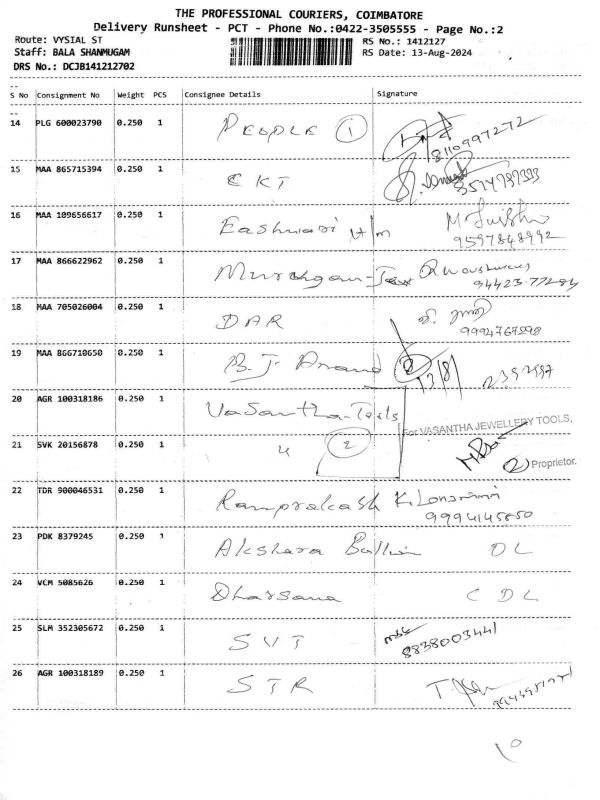 THE PROFESSIONAL COURIERS, COIMBATORE
Delivery Runsheet - PCT - Phone No.:0422-3505555 - Page No.:2
Route: VYSIAL ST RS No.: 1412127
Staff: BALA SHANMUGAM RS Date: 13-Aug-2024
DRS No.: DCJB141212702
S No Consignment No Weight PCS Consignee Details Signature
14 PLG 600023790 0.250 1 PEOPLE 1
8110997272
15 MAA 865715394 0.250 1 CKT
16 MAA 109656617 0.250 1 Eashwari
9597848992
17 MAA 866622962 0.250 1 Murahgan
94423 77284
18 MAA 705026004 0.250 1 DAR
9994767298
19 MAA 866710650 0.250 1 B.J Anand 2 13/8/
20 AGR 100318186 0.250 1 Vasantha-Tools
For VASANTHA JEWELLERY TOOLS,
21 SVK 20156878 0.250 1 2
2 Proprietor.
22 TDR 900046531 0.250 1 Ramprakash
9994145850
23 PDK 8379245 0.250 1 Akshara Bullion DL
24 VCM 5085626 0.250 1 Dharsana CDL
25 SLM 352305672 0.250 1 SVT
8838003441
26 AGR 100318189 0.250 1 STR